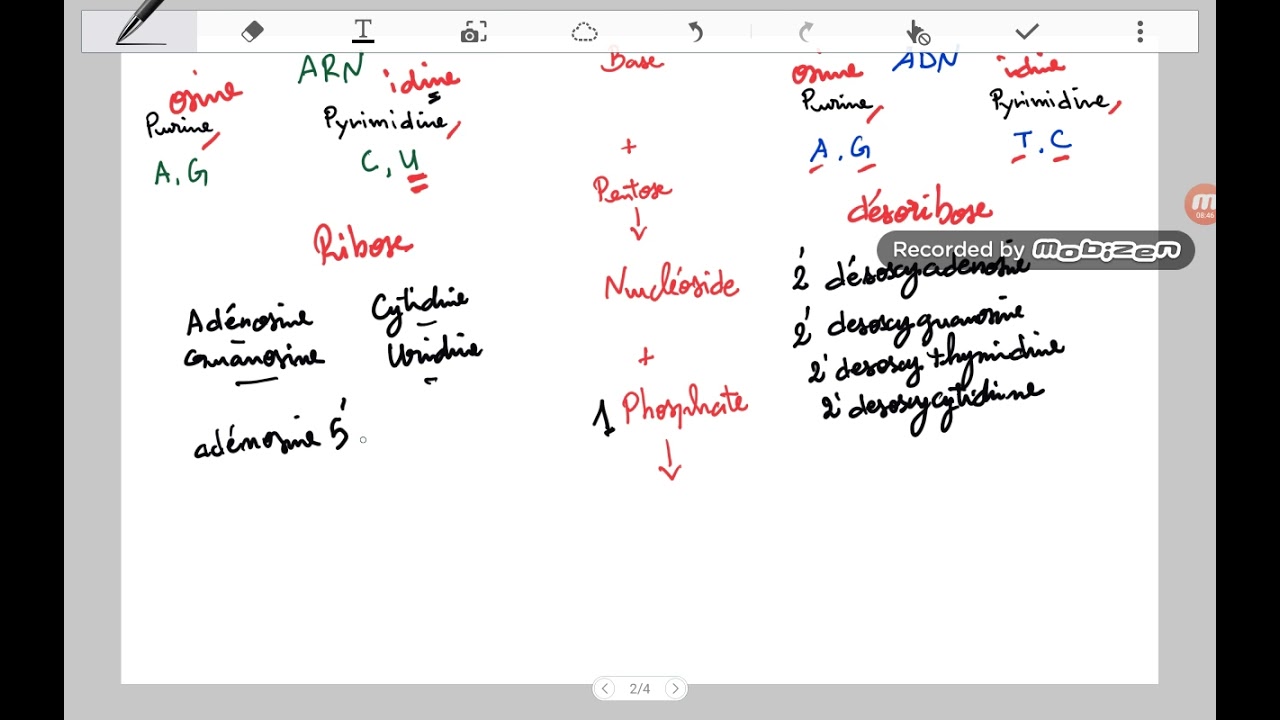 ARN
Base
ADN
osine
idine
osine
idine
Purine,
Pyrimidine,
Purine,
Pyrimidine,
A, G
C, U
+
A. G
T. C
Pentose
Ribose
désoribose
08:46
Recorded by mobizen
Nucléoside
2' désoxyadénosine
Adénosine
Cytidine
2' desoxyguanosine
Guanosine
Uridine
+
2' desoxy thymidine
1 Phosphate
2' desoxycytidinne
adénosine 5'
2/4